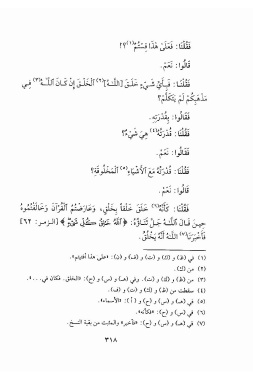 فَقُلْنَا: فَعَلَى هَذَا قِسْتُمْ(١)؟!
قَالُوا: نَعَمْ.
فَقُلْنَا: فَبِأَيِّ شَيْءٍ خَلَقَ [اللَّـهُ](٢) الْخَلْقَ إِنْ كَانَ اللَّـهُ(٣) فِي
مَذْهَبِكُمْ لَمْ يَتَكَلَّمْ؟
فَقَالُوا: بِقُدْرَتِهِ.
فَقُلْنَا: قُدْرَتُهُ(٤) هِيَ شَيْءٌ؟
فَقَالُوا: نَعَمْ.
فَقُلْنَا: قُدْرَتُهُ مَعَ الْأَشْيَاءِ(٥) الْمَخْلُوقَةِ؟
قَالُوا: نَعَمْ.
فَقُلْنَا: كَأَنَّهُ(٦) خَلَقَ خَلْقًا بِخَلْقٍ، وَعَارَضْتُمُ الْقُرْآنَ وَخَالَفْتُمُوهُ
حِينَ قَالَ اللَّـهُ جَلَّ ثَنَاؤُهُ: ﴿اللَّهُ خَالِقُ كُلِّ شَيْءٍ﴾ [الزمر: ٦٢]
فَأَخْبَرَنَا(٧) اللَّـهُ أَنَّهُ يَخْلُقُ.
(١) في (ظ) و (ك) و (ت) و (ف) و (ن): «على هذا
(٢) من (ك).
(٣) من (ظ) و (ك) و (ت). وفي (هـ) و (س) و (ح): «الخلق. فكان في...».
(٤) سقطت من (ظ) و (ك) و (ت) و (ف).
(٥) في (هـ) و (س) و (ح) و (أ): «الأسماء».
(٦) في (س) و (ح): «فكأنه».
(٧) في (هـ) و (س) و (ح): والمثبت من بقية النسخ.
٣١٨